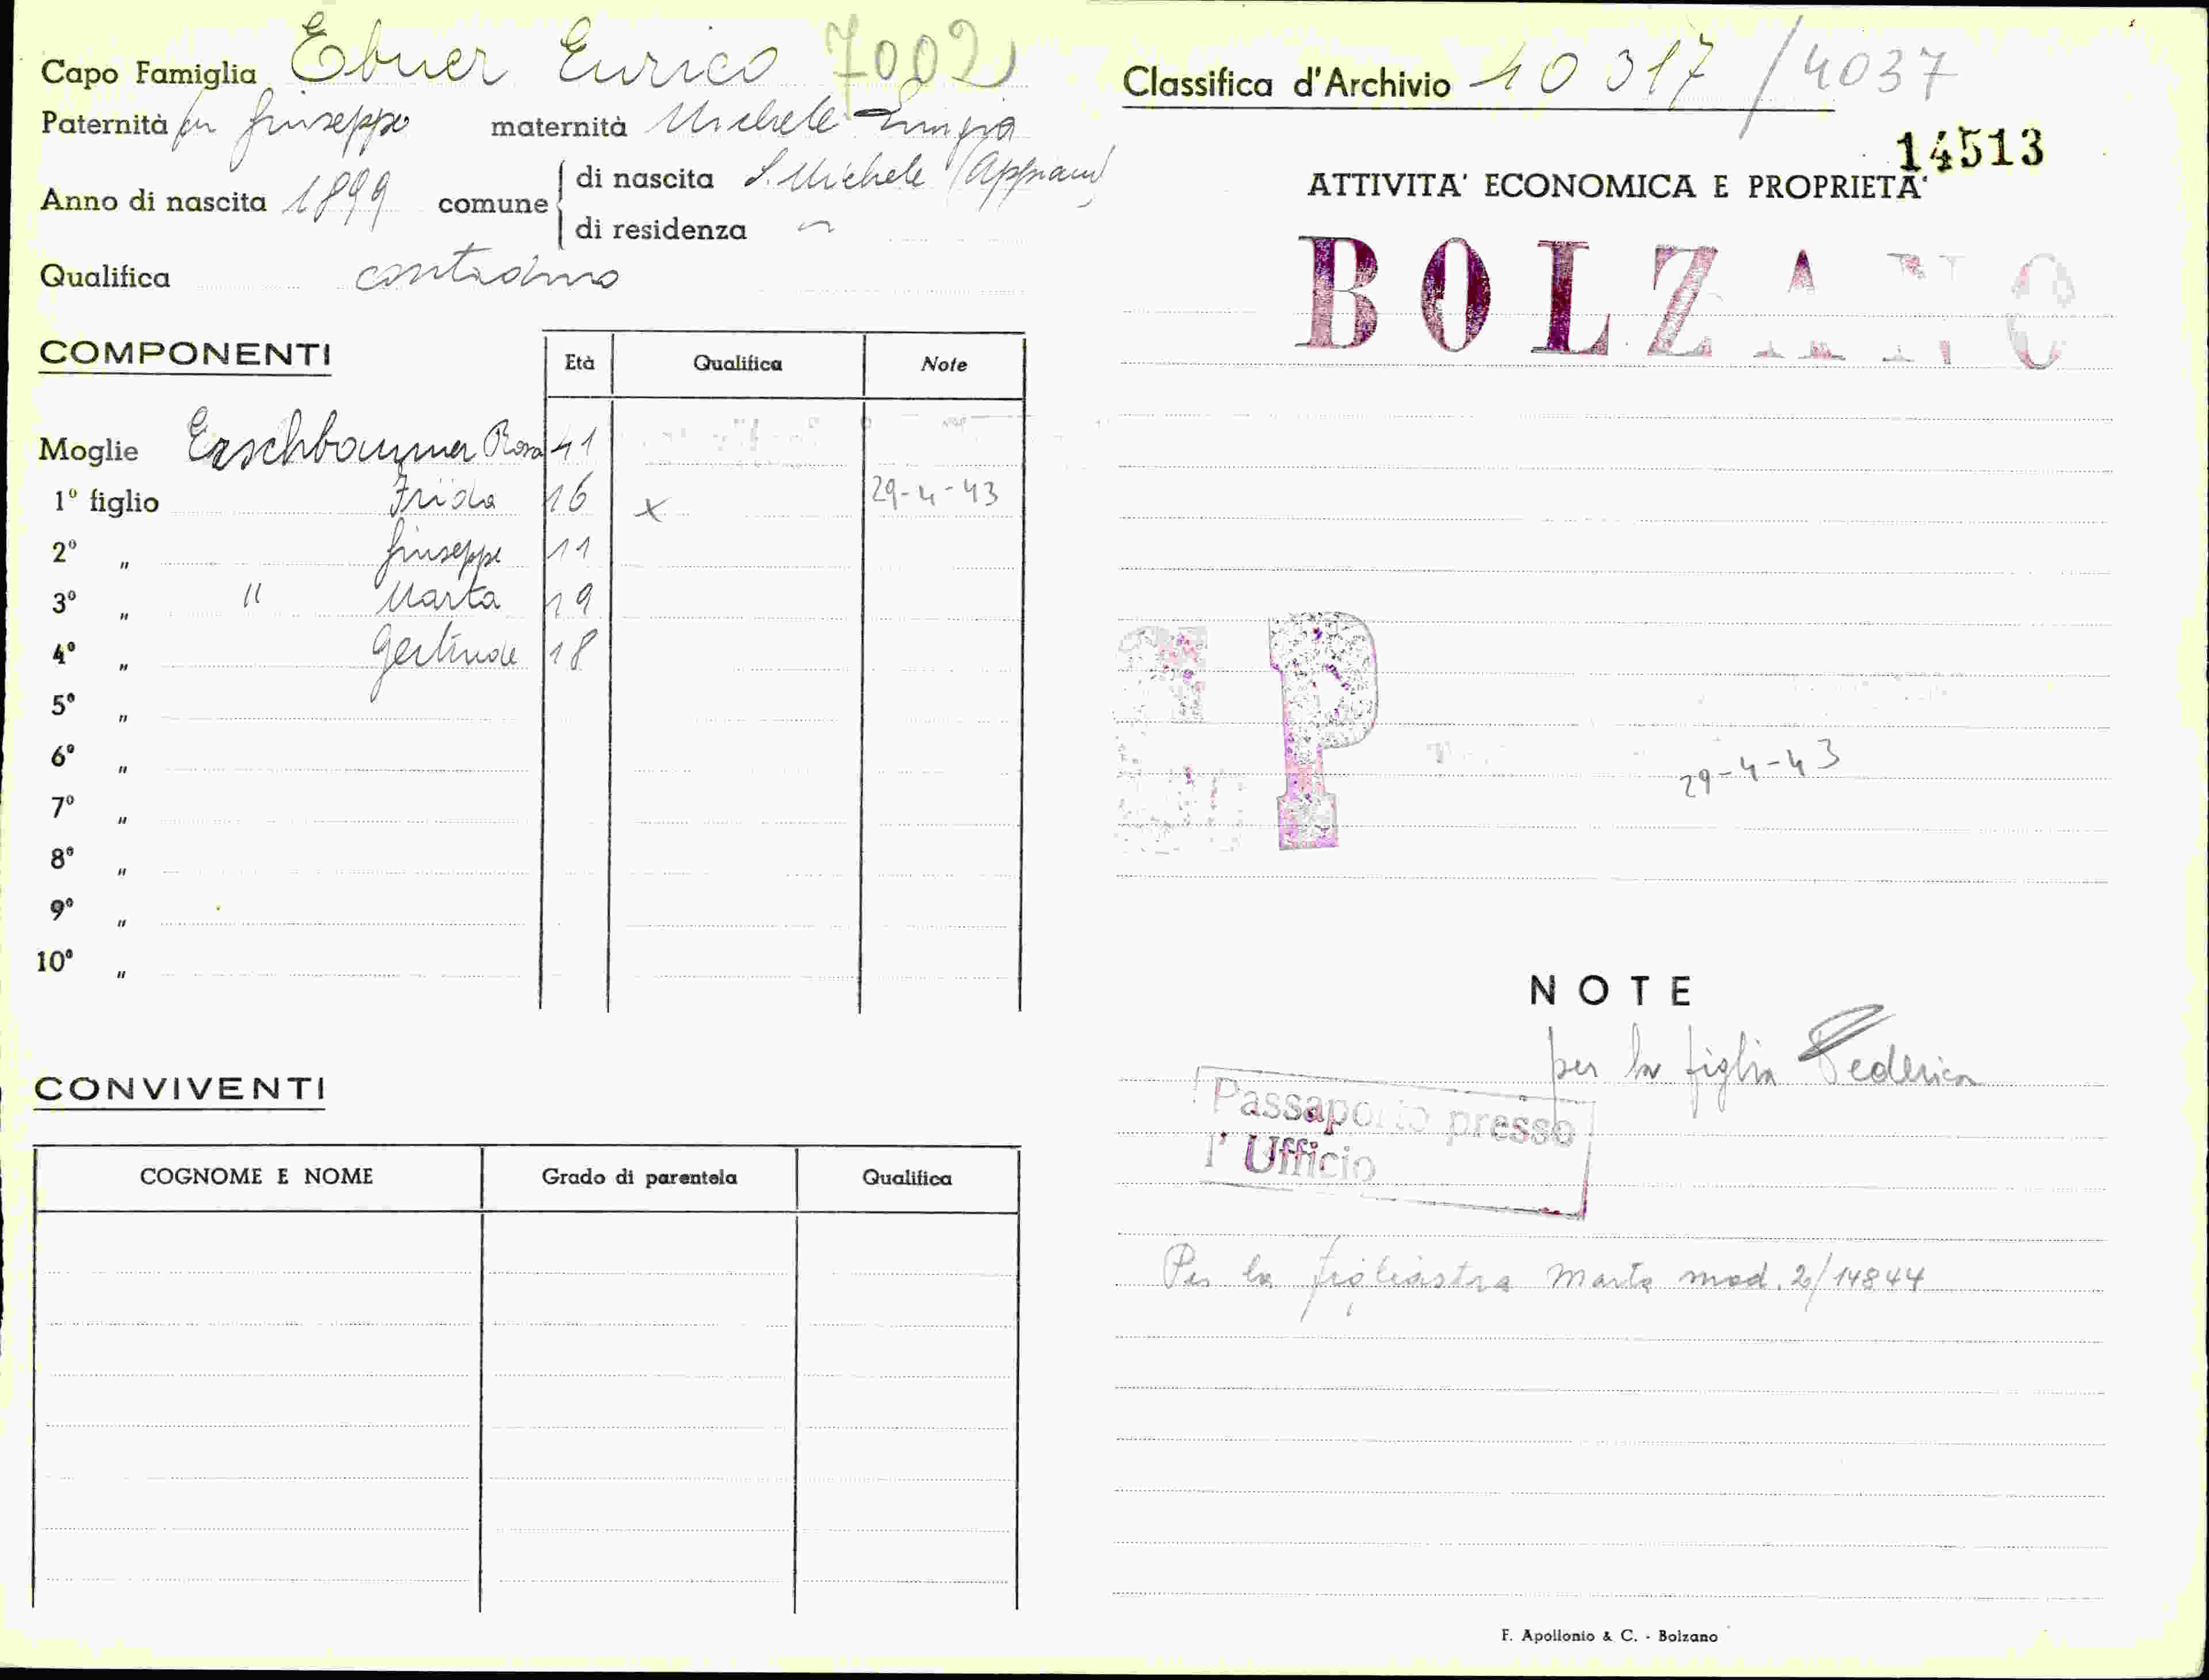 Capo Famiglia Ebner Enrico 7002
Paternità fu Giuseppe maternità Michele Luigia
Anno di nascita 1899 comune di nascita S. Michele (Appiano)
di residenza
Qualifica contadino
COMPONENTI
Età Qualifica Note
Moglie Erschbaumer Rosa 41
1º figlio Frida 16 x 29-4-43
2º " Giuseppe 11
3º " " Marta 19
4º " Gertrude 18
5º "
6º "
7º "
8º "
9º "
10º "
CONVIVENTI
COGNOME E NOME Grado di parentela Qualifica
Classifica d'Archivio 40 317 / 4037
14513
ATTIVITA' ECONOMICA E PROPRIETA'
BOLZANO
P
29-4-43
NOTE
per la figlia Federica
Passaporto presso
l' Ufficio
Per la figliastra Marta mod. 2/14844
F. Apollonio & C. - Bolzano